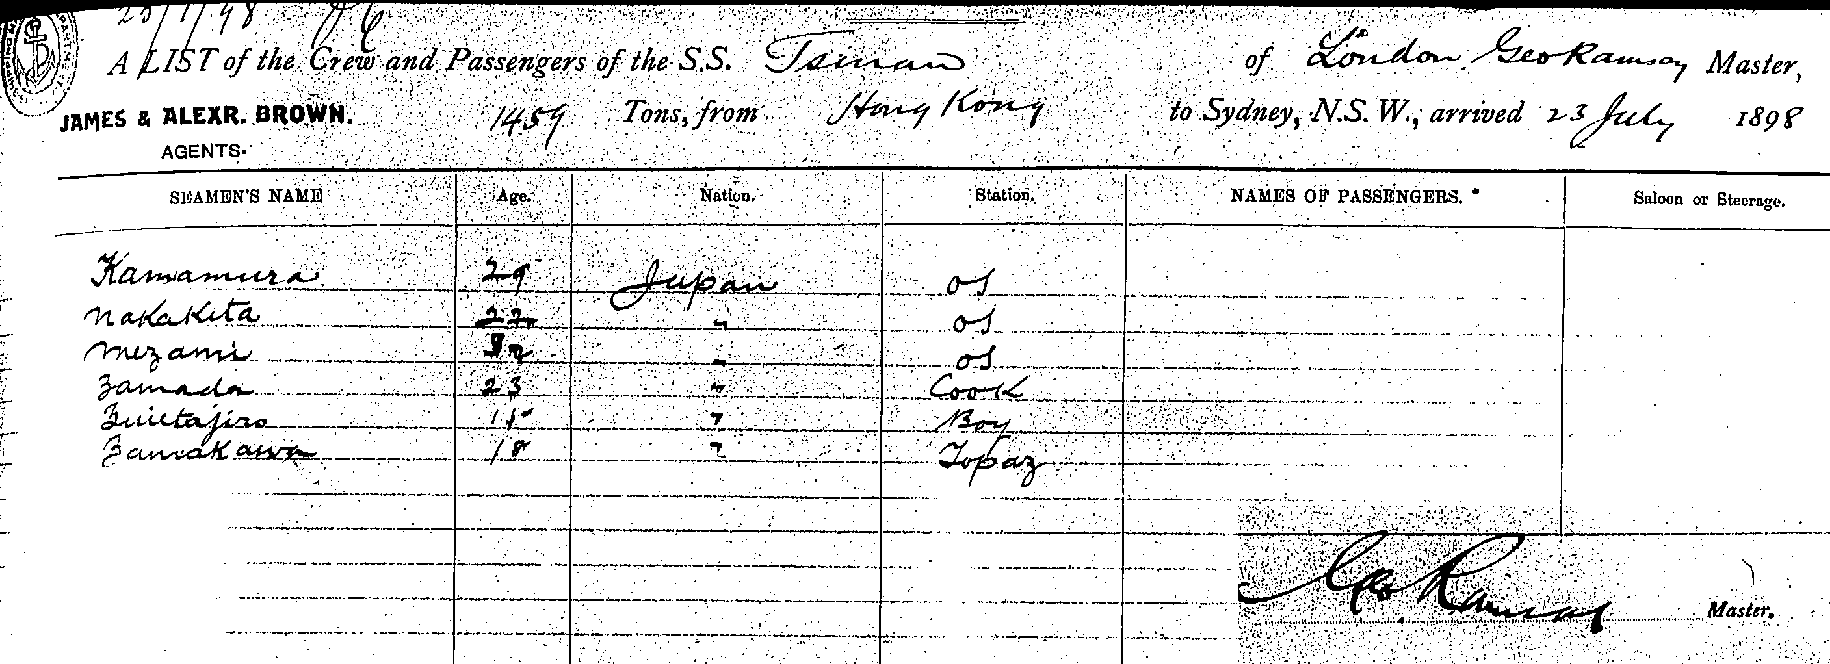 23/7/98
A LIST of the Crew and Passengers of the S.S. Tsinan of London, Geo Ramsay Master,
JAMES & ALEXR. BROWN.
AGENTS.
1459 Tons, from Hong Kong to Sydney, N.S.W., arrived 23 July 1898
SEAMEN'S NAME Age. Nation. Station. NAMES OF PASSENGERS. Saloon or Steerage.
Kamamura 29 Japan OS
Nakakita 22 " OS
Mezami 32 " OS
Zamada 23 " Cook
15 " Boy
Zamakawa 18 " Topaz
Geo Ramsay Master.